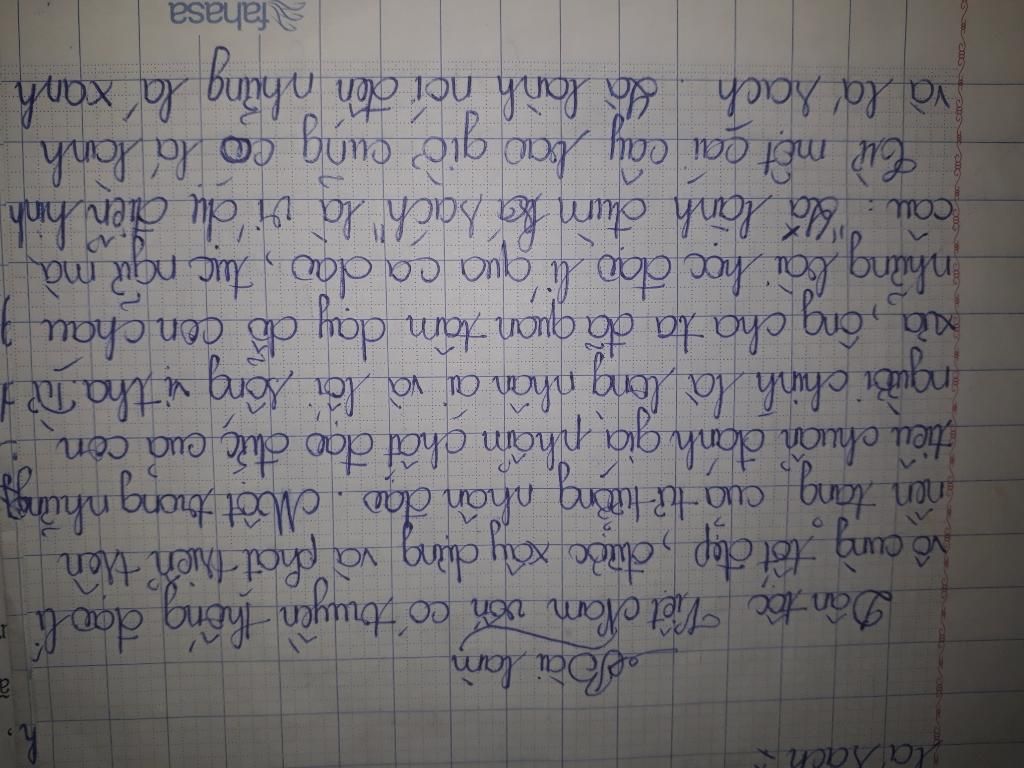 lá rách".
Bài làm
Dân tộc Việt Nam vốn có truyền thống đạo lí
vô cùng tốt đẹp, được xây dựng và phát triển trên
nền tảng của tư tưởng nhân đạo. Một trong những
tiêu chuẩn đánh giá phẩm chất đạo đức của con
người chính là lòng nhân ái và lối sống vị tha. Từ
xưa, ông cha ta đã quan tâm dạy dỗ con cháu
những bài học đạo lí qua ca dao, tục ngữ mà
câu: "Lá lành đùm lá rách" là ví dụ điển hình
Từ một cái cây bao giờ cũng có lá lành
và lá rách. Lá lành nói đến những lá xanh
fahasa